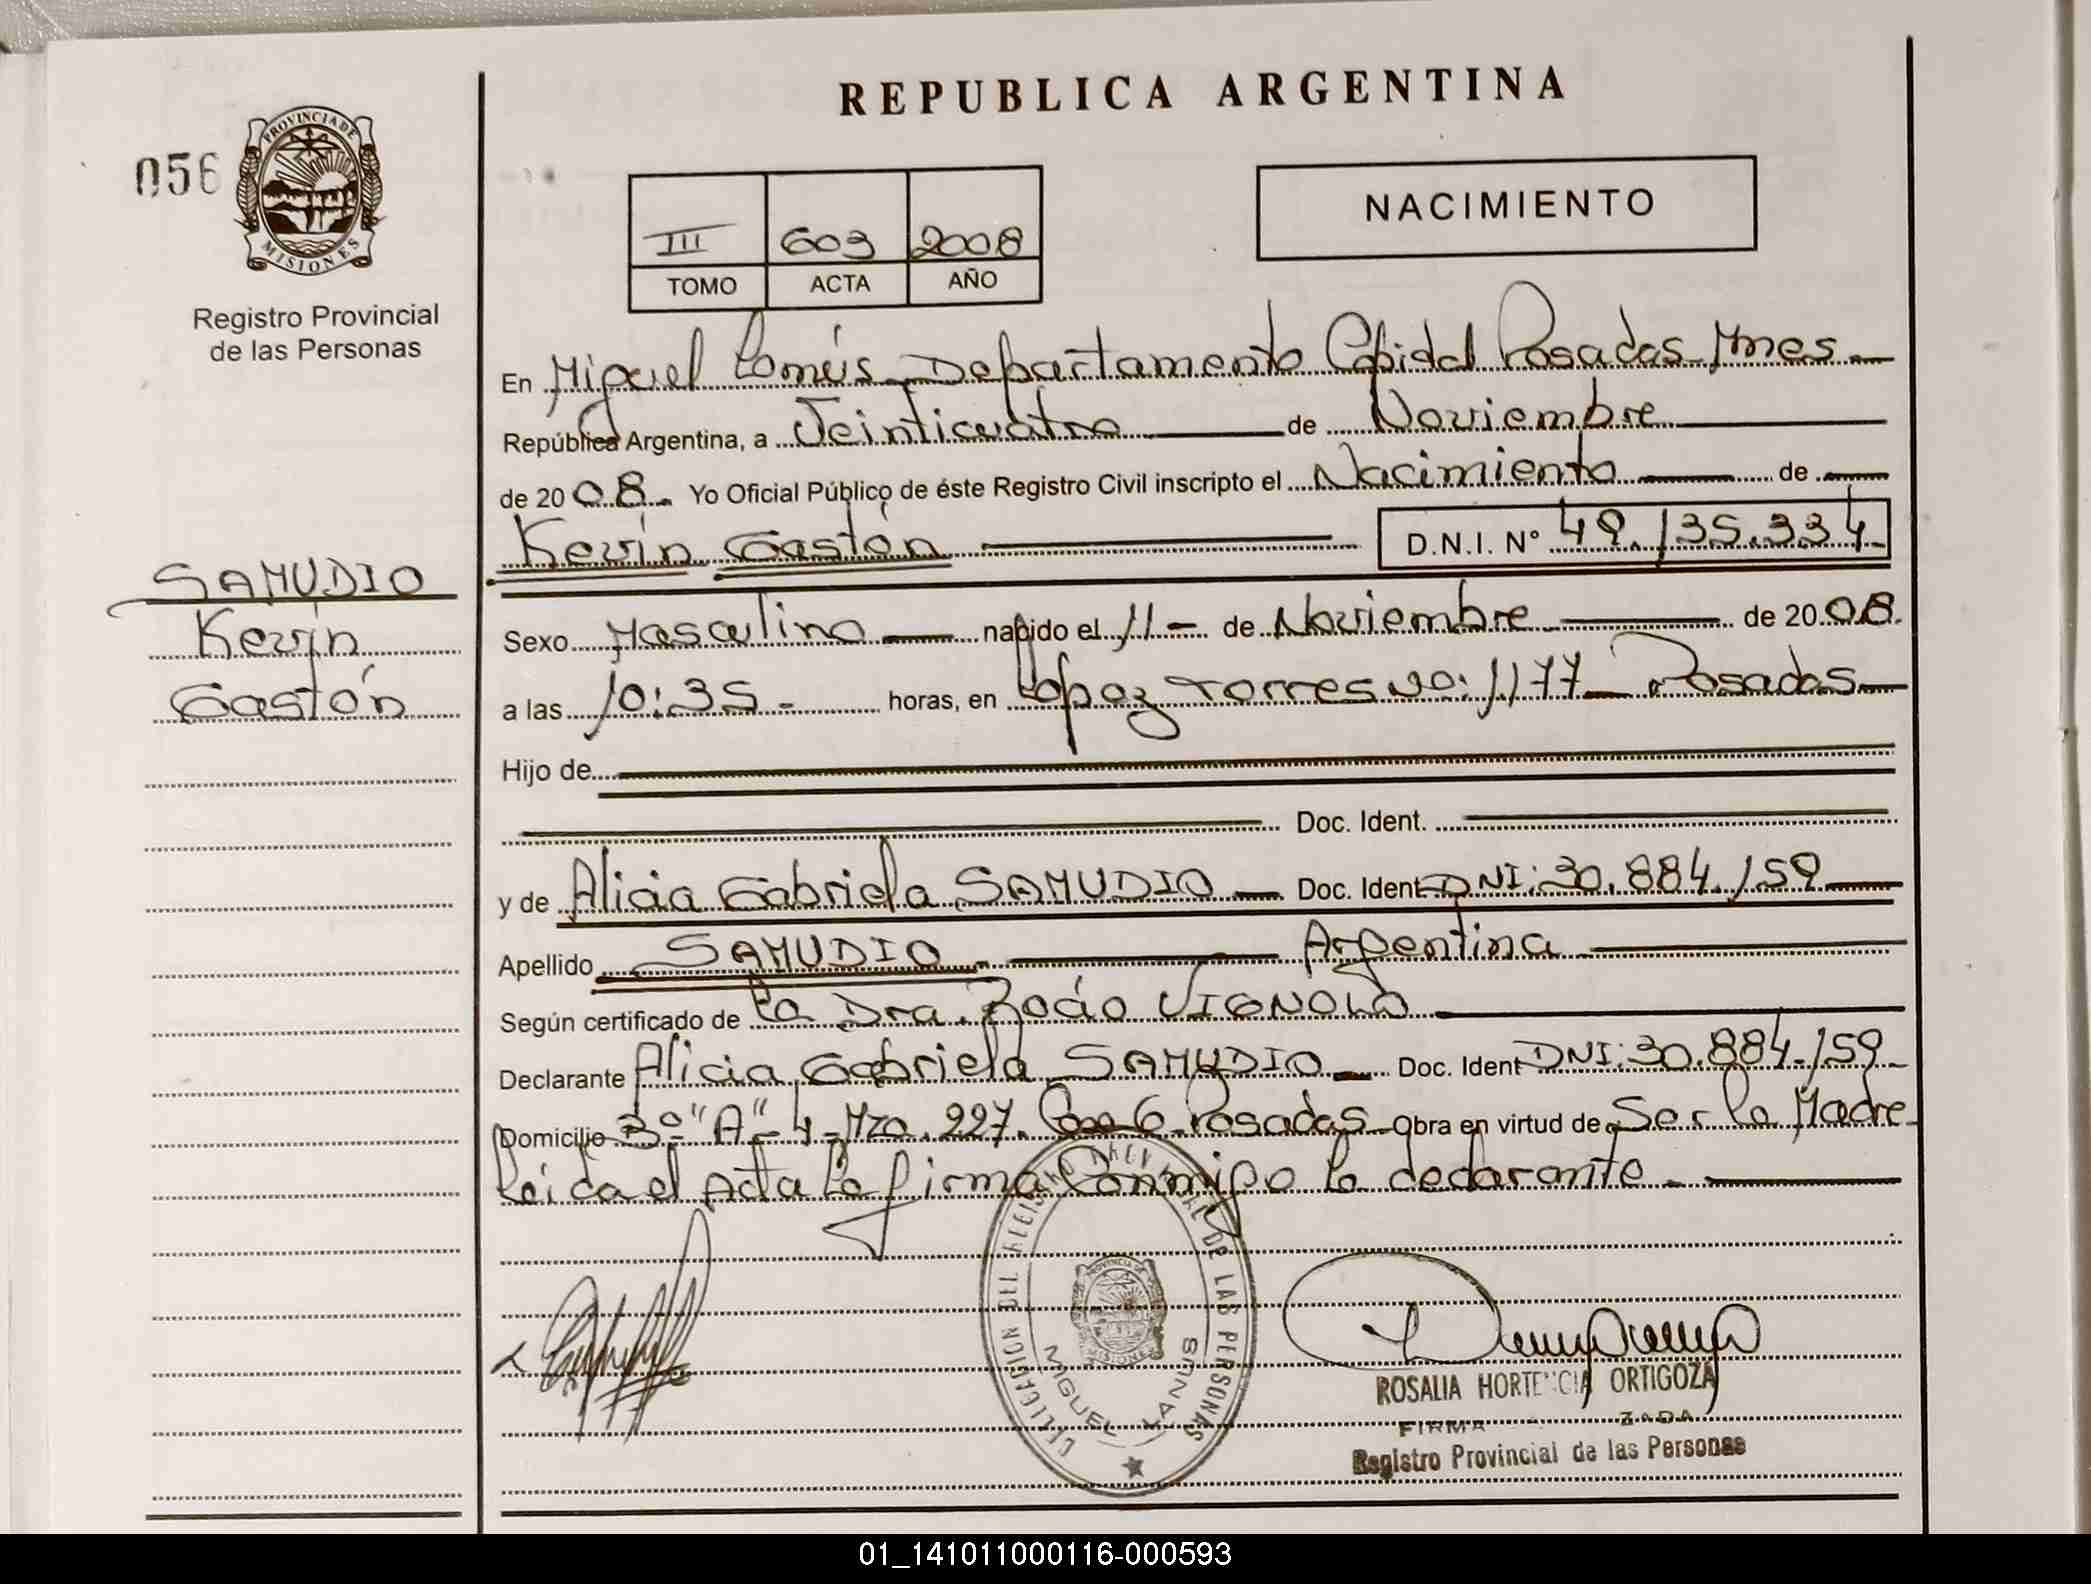 REPUBLICA ARGENTINA
056
PROVINCIA DE MISIONES
Registro Provincial
de las Personas
III 603 2008
TOMO ACTA AÑO
NACIMIENTO
En Miguel Lanús Departamento Capital Posadas Mnes
República Argentina, a Veinticuatro de Noviembre
de 2008. Yo Oficial Público de éste Registro Civil inscripto el Nacimiento de
Kevin Gastón D.N.I. Nº 49.135.334
SAMUDIO
Kevin
Gastón
Sexo Masculino nacido el 11 - de Noviembre de 2008.
a las 10:35 - horas, en López Torres no: 1177 Posadas
Hijo de
Doc. Ident.
y de Alicia Gabriela SAMUDIO Doc. Ident DNI: 30.884.159
Apellido SAMUDIO Argentina
Según certificado de la Dra. Rocío VIGNOLA
Declarante Alicia Gabriela SAMUDIO Doc. Ident DNI: 30.884.159
Domicilio 3º "A" 4 - Mza. 227. Casa 6 Posadas Obra en virtud de Ser la Madre
Leída el Acta la firma Conmigo la declarante
DELEGACION DEL REGISTRO PROVINCIAL DE LAS PERSONAS
PROVINCIA DE
MISIONES
MIGUEL LANUS
ROSALIA HORTENCIA ORTIGOZA
FIRMA ZADA
Registro Provincial de las Personas
01_141011000116-000593